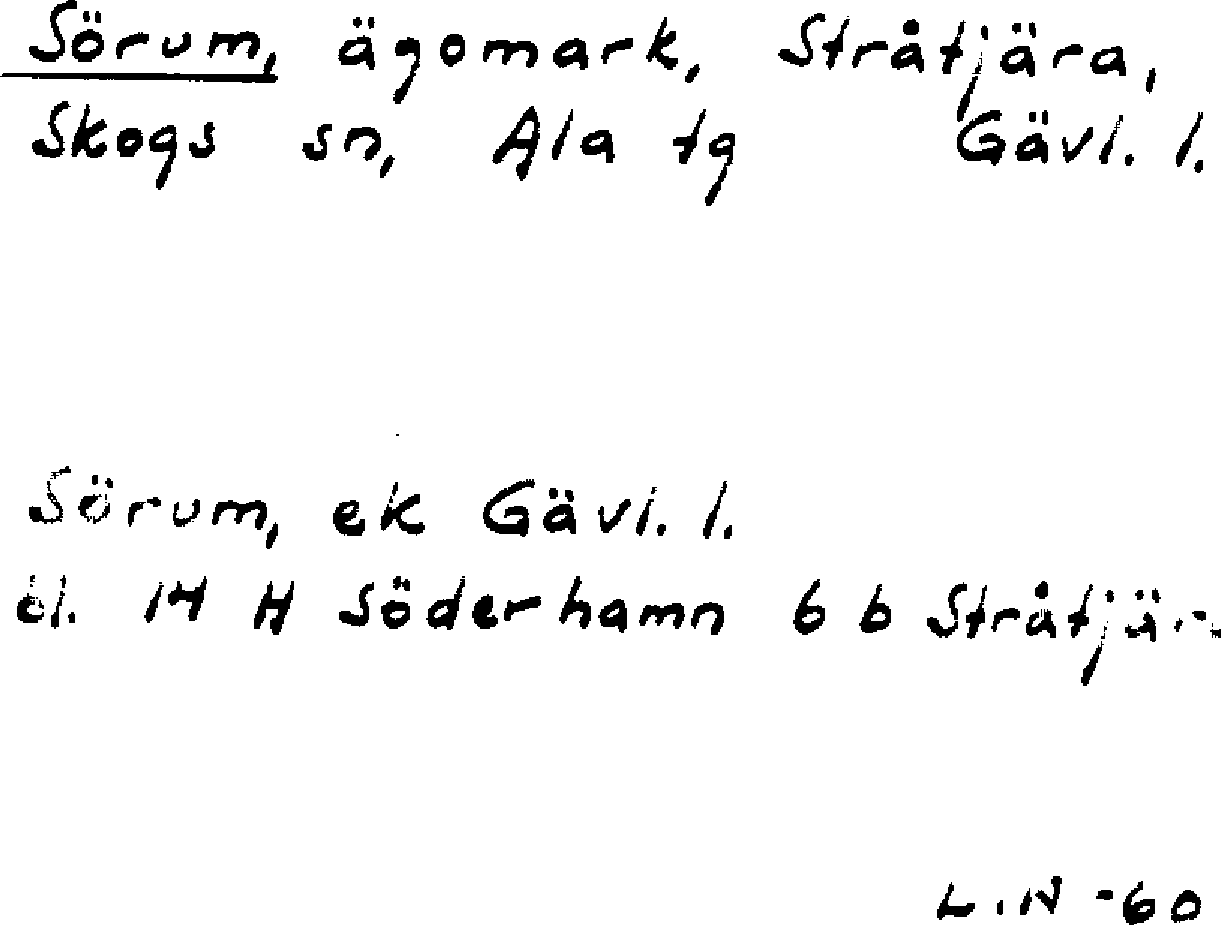 Sörum, ägomark, Stråtjära,
Skogs sn, Ala tg Gävl. l.
Sörum, ek Gävl. l.
bl. 14 H Söderhamn 6 b Stråtjär
L.N -60